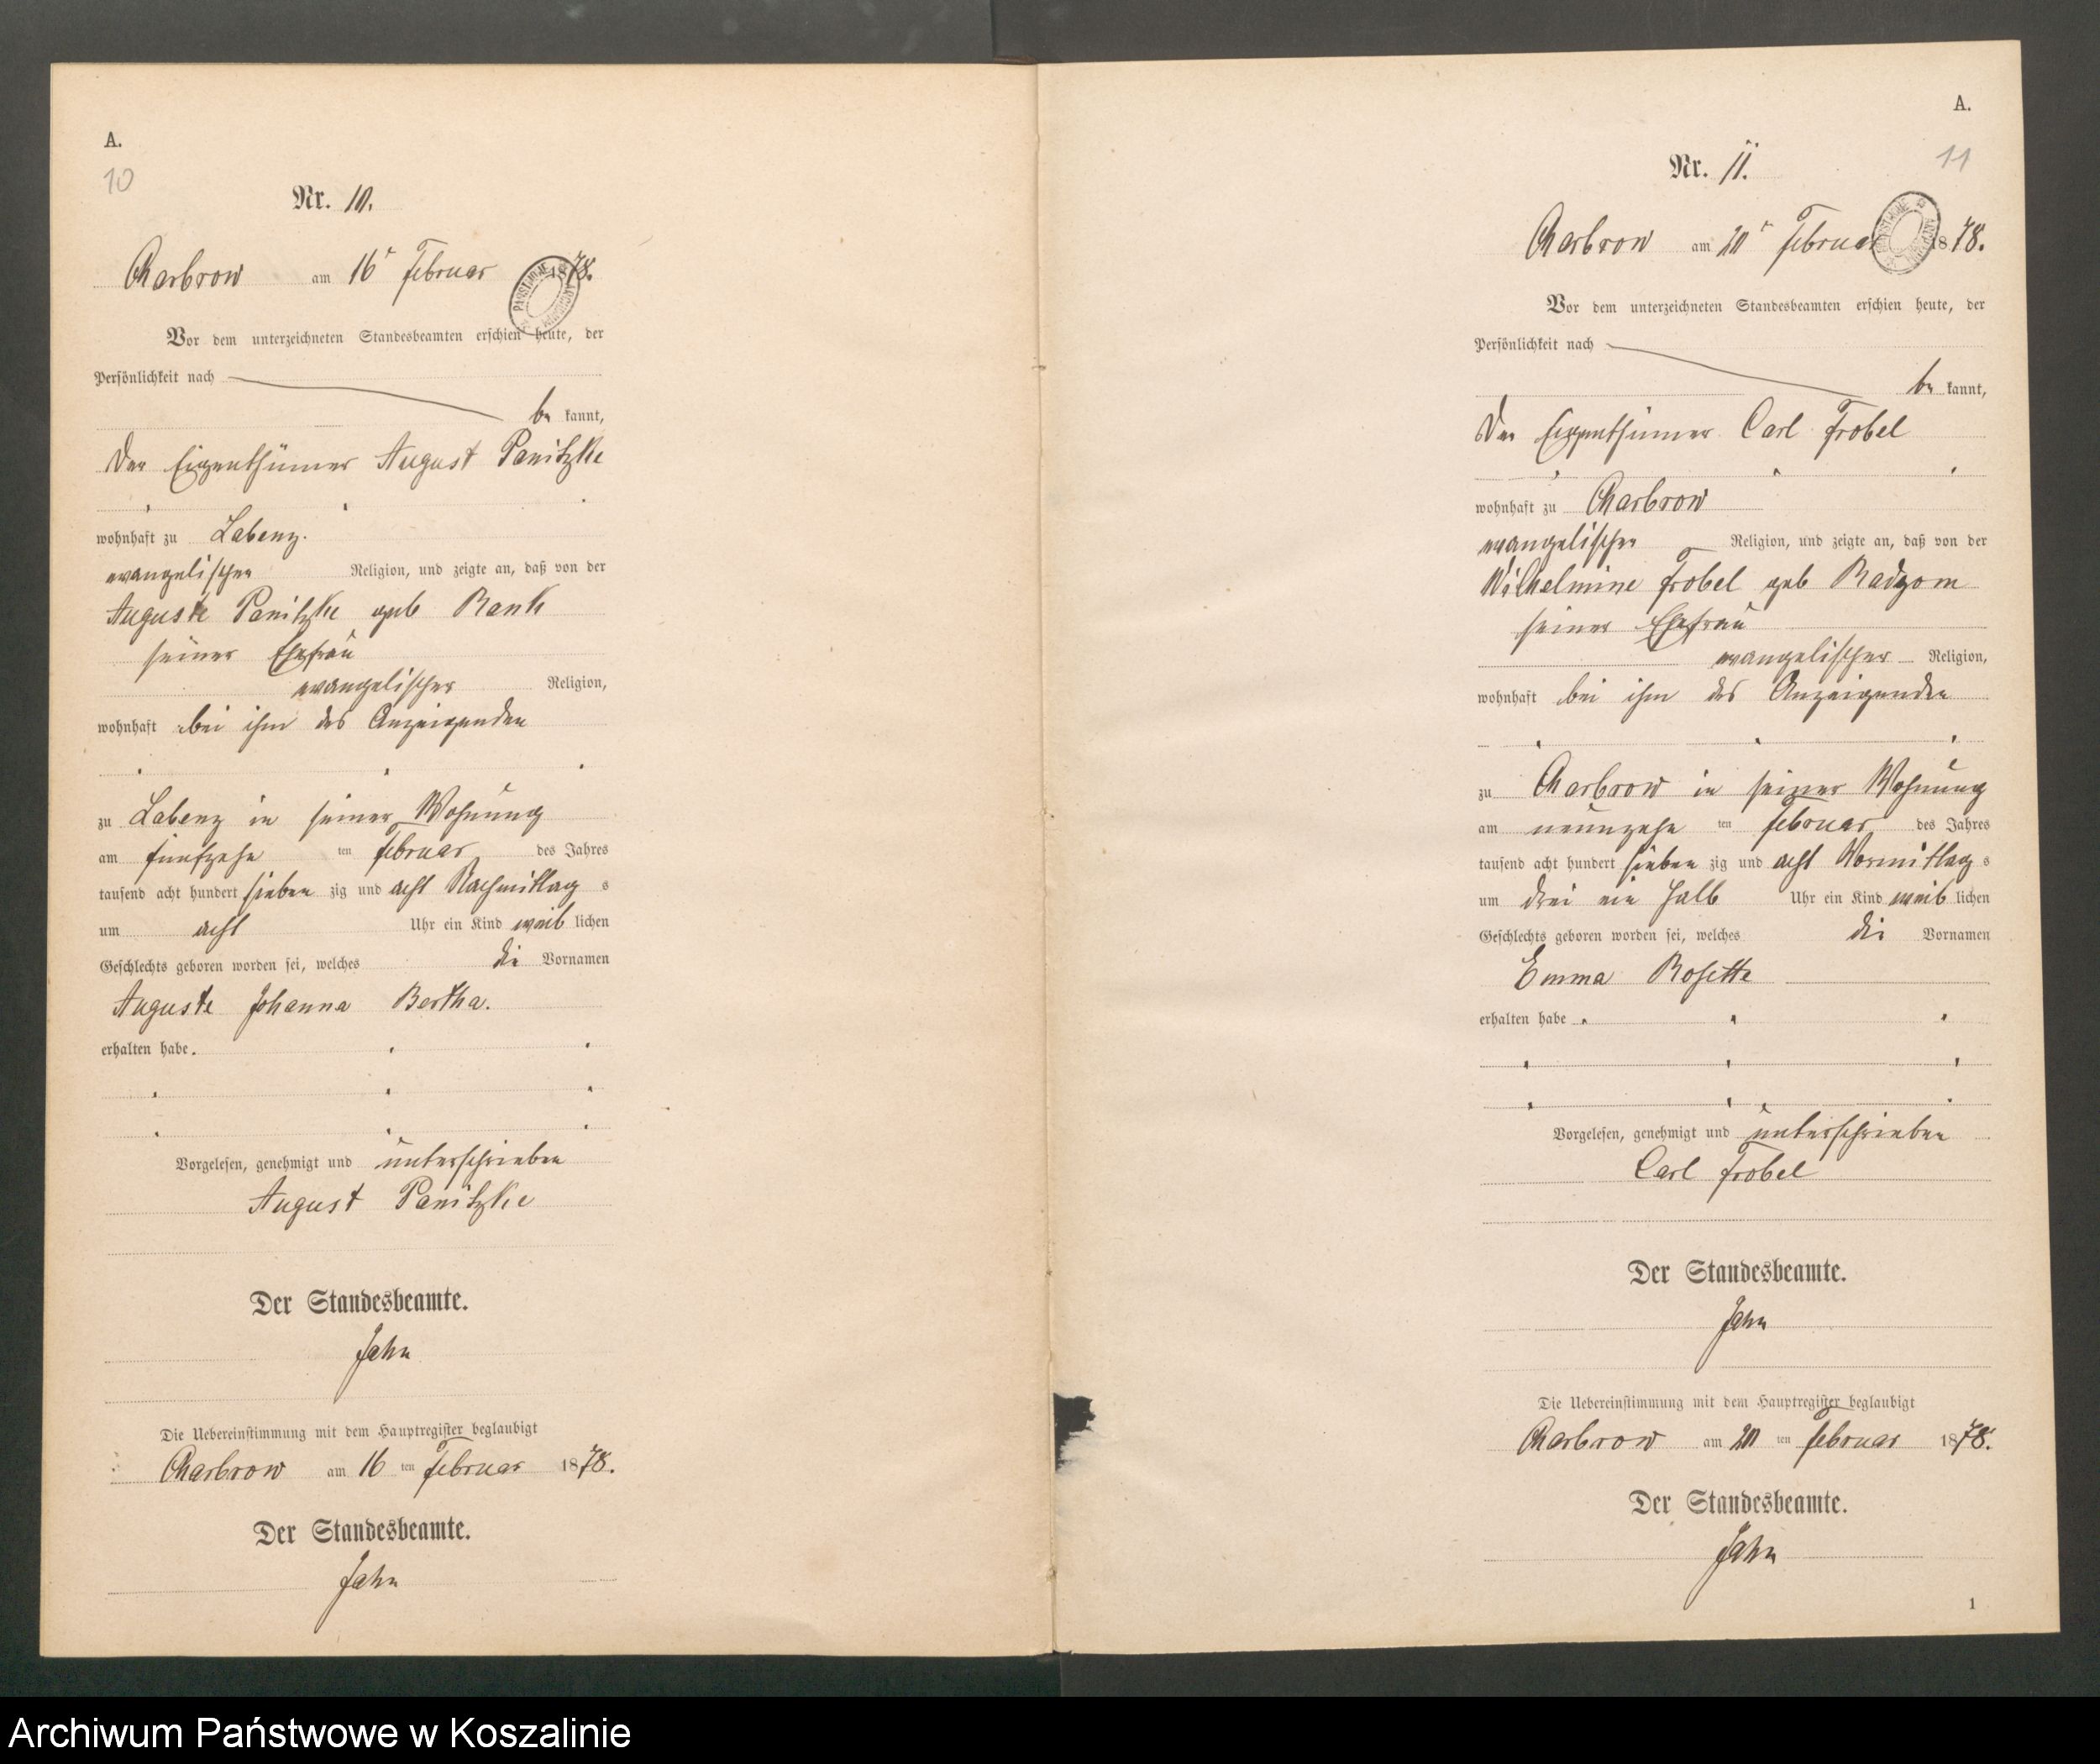 A.
10
Nr. 10.
Charbrow am 16t Februar 1878.
Vor dem unterzeichneten Standesbeamten erschien heute, der
Persönlichkeit nach
be kannt,
der Eigenthümer August Panitzke
wohnhaft zu Labenz.
evangelischer Religion, und zeigte an, daß von der
Auguste Panitzke geb Rank
seiner Ehefrau
evangelischer Religion,
wohnhaft bei ihm des Anzeigenden
zu Labenz in seiner Wohnung
am fünfzehn ten Februar des Jahres
tausend acht hundert sieben zig und acht Nachmittag s
um acht Uhr ein Kind weib lichen
Geschlechts geboren worden sei, welches die Vornamen
Auguste Johanna Bertha.
erhalten habe.
Vorgelesen, genehmigt und unterschrieben
August Panitzke
Der Standesbeamte.
Jahn
Die Uebereinstimmung mit dem Hauptregister beglaubigt
Charbrow am 16 ten Februar 1878.
Der Standesbeamte.
Jahn
A.
11
Nr. 11.
Charbrow am 20t Februar 1878.
Vor dem unterzeichneten Standesbeamten erschien heute, der
Persönlichkeit nach
be kannt,
der Eigenthümer Carl Frobel
wohnhaft zu Charbrow
evangelischer Religion, und zeigte an, daß von der
Wilhelmine Frobel geb Radzom
seiner Ehefrau
evangelischer Religion,
wohnhaft bei ihm des Anzeigenden
zu Charbrow in seiner Wohnung
am neunzehn ten Februar des Jahres
tausend acht hundert sieben zig und acht Vormittag s
um drei ein halb Uhr ein Kind weib lichen
Geschlechts geboren worden sei, welches die Vornamen
Emma Rosette
erhalten habe
Vorgelesen, genehmigt und unterschrieben
Carl Frobel
Der Standesbeamte.
Jahn
Die Uebereinstimmung mit dem Hauptregister beglaubigt
Charbrow am 20 ten Februar 1878.
Der Standesbeamte.
Jahn
1
Archiwum Państwowe w Koszalinie